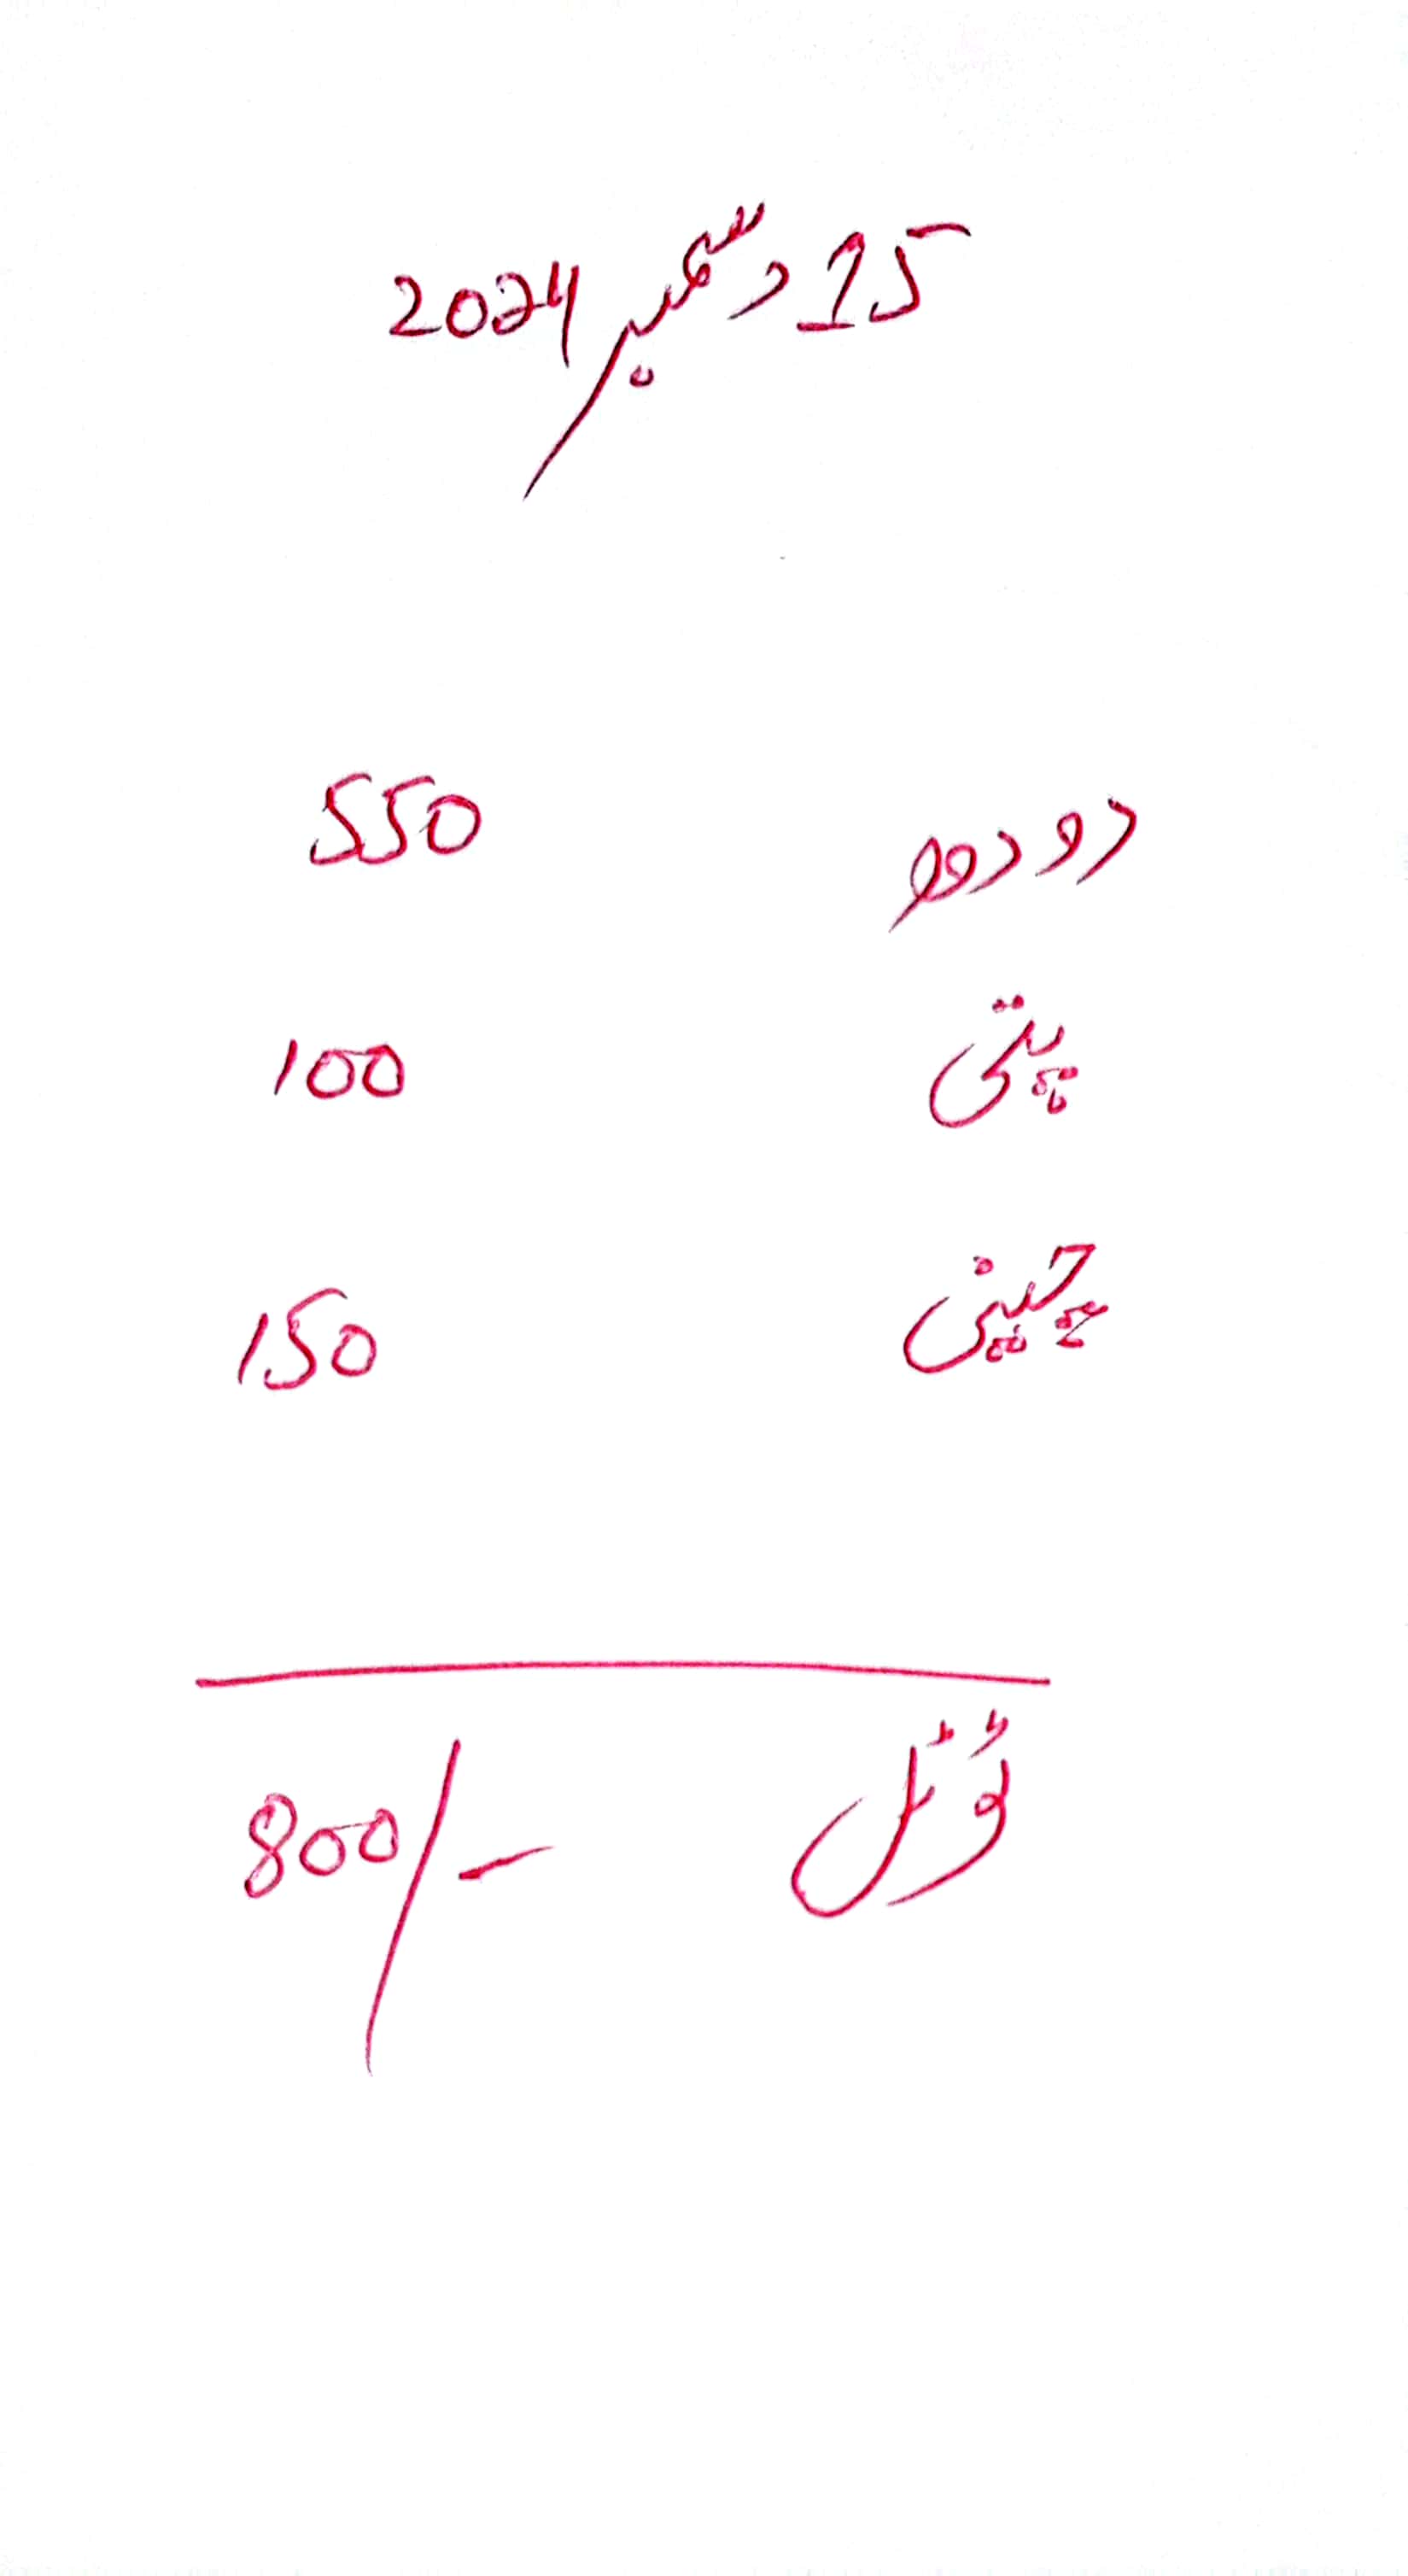 15 دسمبر 2024
دودھ 550
پتی 100
چینی 150
ٹوٹل 800/-